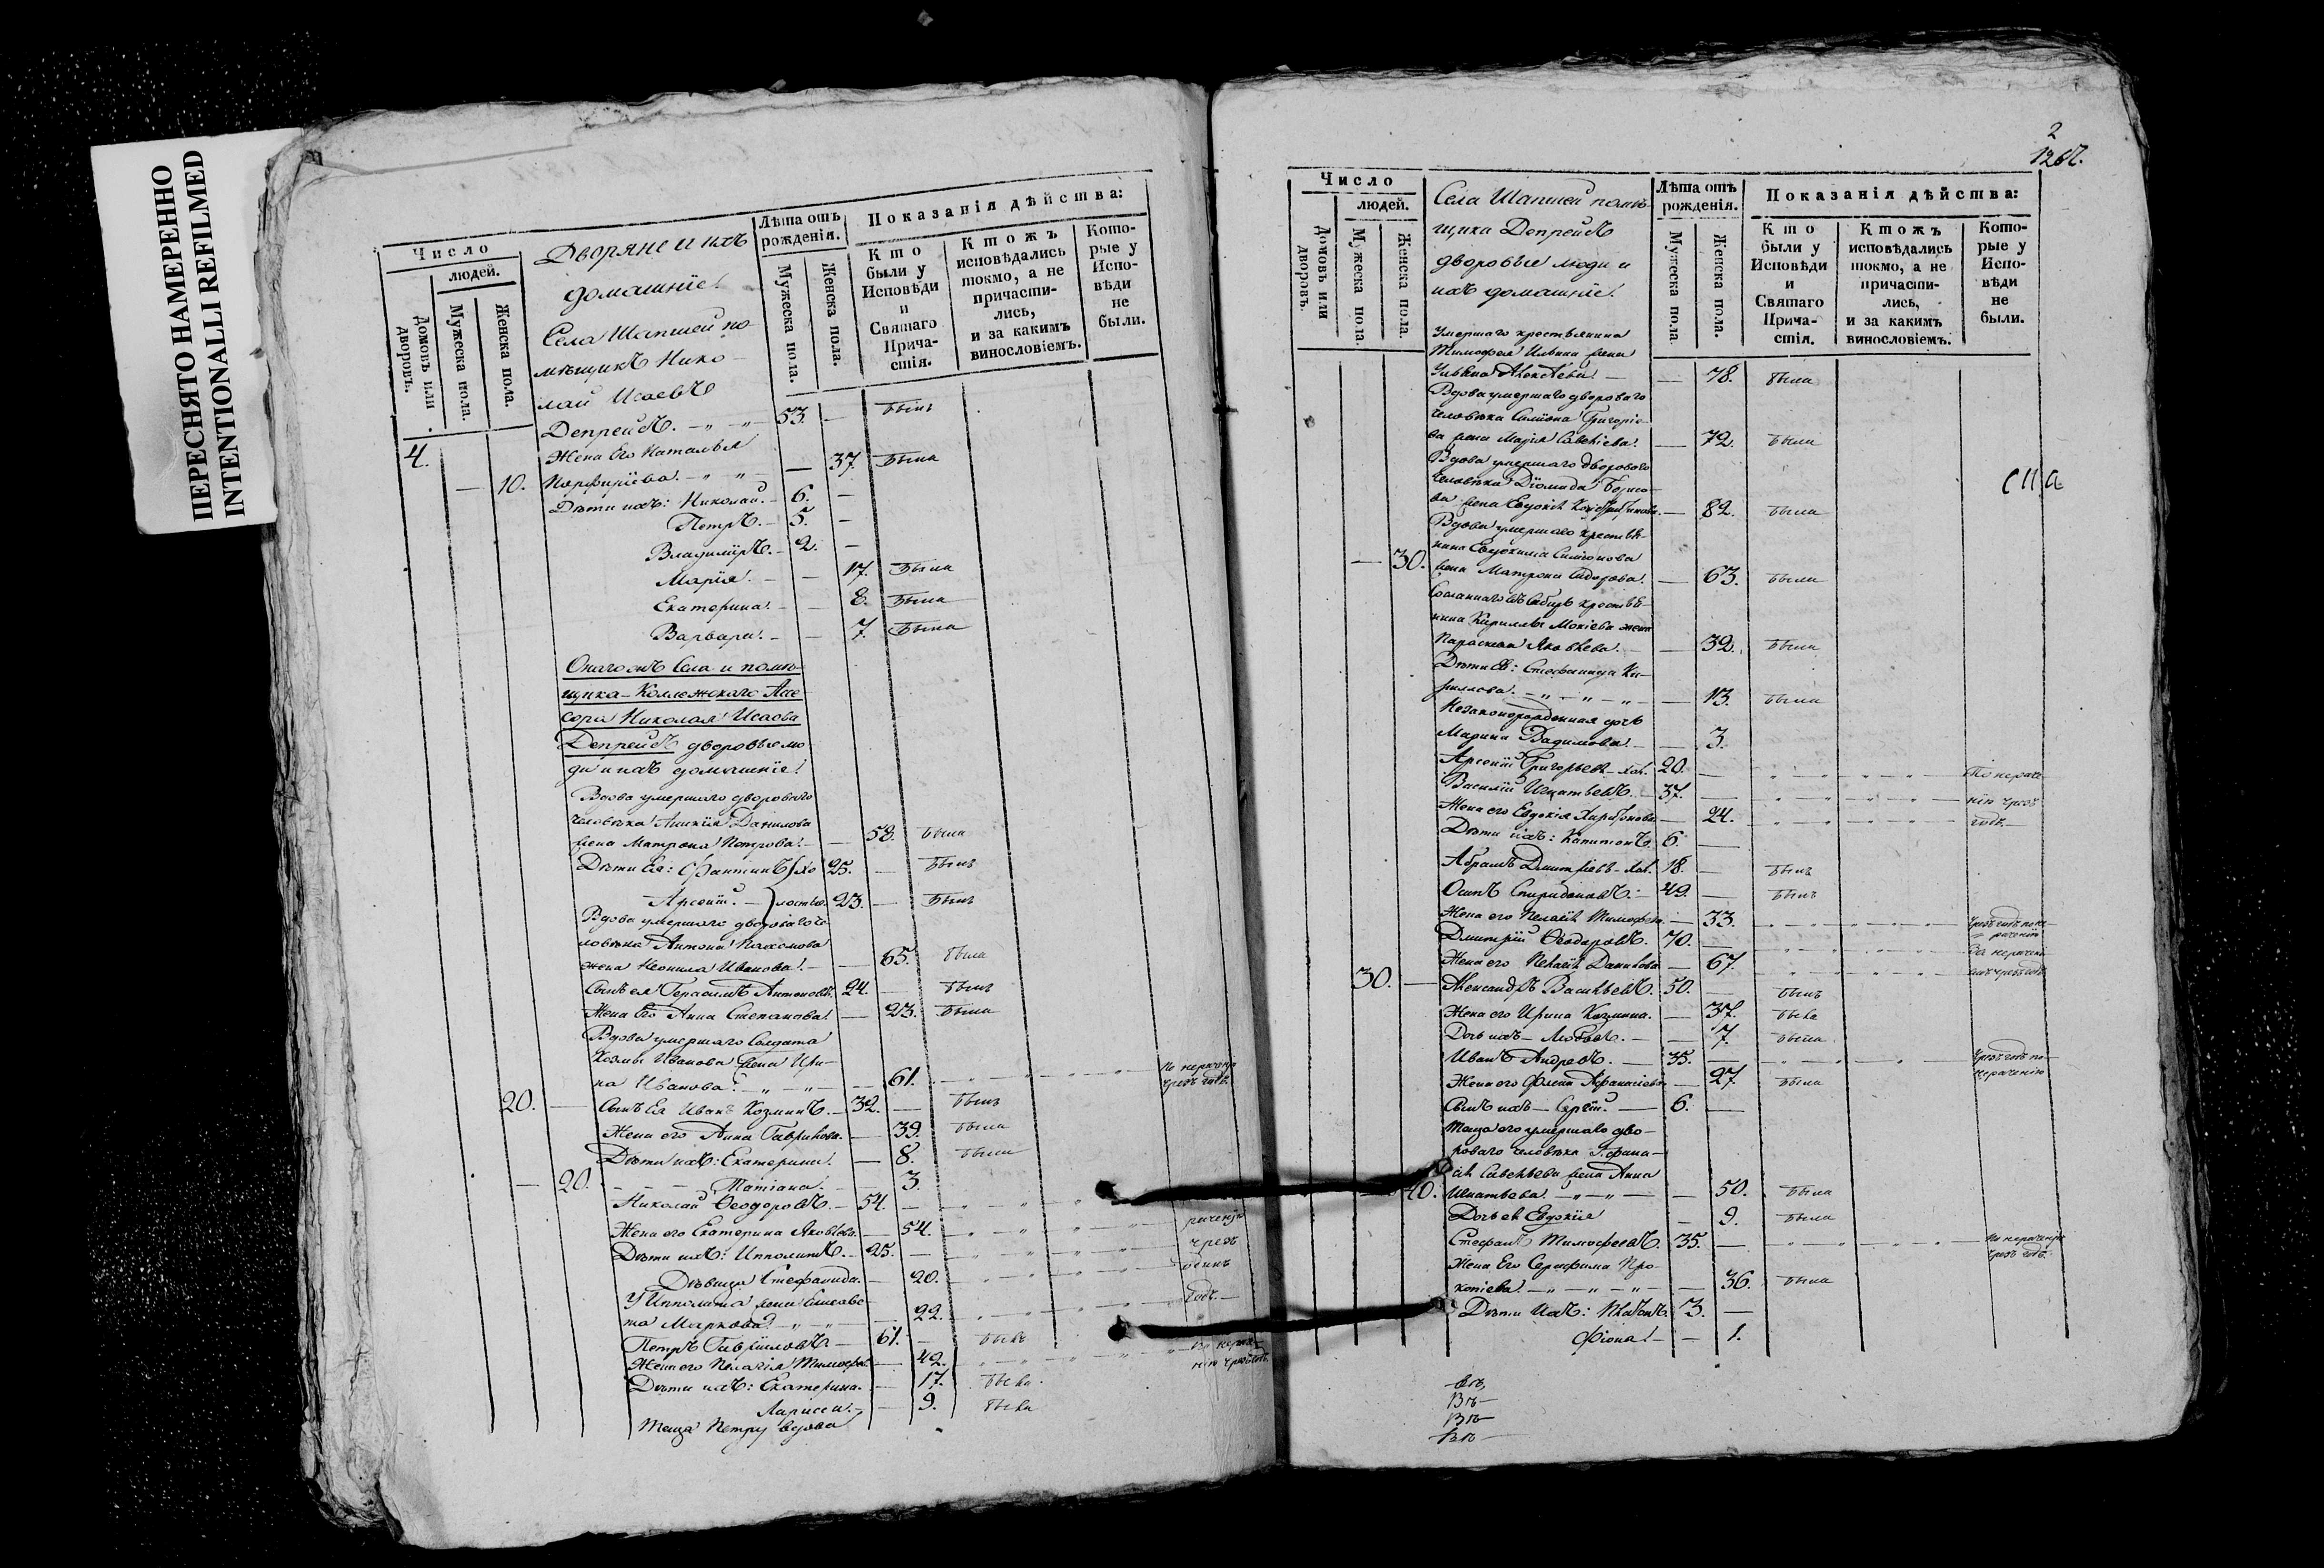 ПЕРЕСНЯТО НАМЕРЕННО
INTENTIONALLI REFILMED
Число
людей.
Домовъ или дворовъ.
Мужеска пола.
Женска пола.
Дворяне и ихъ
домашніе
Села Шапшей по-
мѣщикъ Нико-
лай Исаевъ
Депрейсъ. 53. былъ
Лѣта отъ рожденія.
Мужеска пола.
Женска пола.
Показанія дѣйства:
Кто были у Исповѣди и Святаго Причастія.
Ктожъ исповѣдались токмо, а не причастились, и за какимъ винословіемъ.
Которые у Исповѣди не были.
4.
Жена Его Наталья
10. Порфиріева. 37. была
Дѣти ихъ: Николай. 6.
Петръ. 5.
Владиміръ. 2.
Марія. 17. была
Екатерина. 8. была
Варвара. 7. была
Онаго жъ Села и помѣ-
щика Коллежскаго Ассе-
сора Николая Исаова
Депрейсъ дворовые лю-
ди и ихъ домашніе
Вдова умершаго двороваго
человѣка Данилова
жена Матрона Петрова. 58. была
Дѣти Ея: 25. былъ
Арсеній. 23. былъ
Вдова умершаго двороваго че-
ловѣка Антона Пахомова
жена Неонила Иванова. 65. была
Сынъ ея Герасимъ Антоновъ. 24. былъ
Жена Его Анна Степанова. 23. была
Вдова умершаго Солдата
Козмы Иванова жена Ири-
на Иванова. 61. по нераченію чрезъ годъ.
20. Сынъ Ея Иванъ Козминъ. 32. былъ
Жена его Анна Гаврилова. 39. была
Дѣти ихъ: Екатерина. 8. была
20. Татіана. 3.
Николай Ѳеодоровъ. 54.
Жена его Екатерина Яковлева. 54. раченію
Дѣти ихъ: Ипполитъ. 25. чрезъ
Дѣвица Стефанида. 20. одинъ
У Ипполита жена Елисаве-
та Маркова. 22. годъ.
Петръ Гавриловъ 61. былъ
Жена его Пелагія Тимофѣева 42.
Дѣти ихъ: Екатерина. 17. была
Лариса. 9. была
Теща Петру вдова
2
1267.
Число
людей.
Домовъ или дворовъ.
Мужеска пола.
Женска пола.
Села Шапшей помѣ-
щика Депрейсъ
дворовые люди и
ихъ домашніе.
Лѣта отъ рожденія.
Мужеска пола.
Женска пола.
Показанія дѣйства:
Кто были у Исповѣди и Святаго Причастія.
Ктожъ исповѣдались токмо, а не причастились, и за какимъ винословіемъ.
Которые у Исповѣди не были.
Умершаго крестьянина
Тимофея Ильина жена
Ульяна Алексѣева. 78. была
Вдова умершаго двороваго
человѣка Симіона Григоріе-
ва жена Марія Савеліева. 72. была
Вдова умершаго двороваго
человѣка Діомида Борисо-
ва жена Евдокія 82. была
Вдова умершаго крестья-
нина Евдокима Симіонова
30. жена Матрона Сидорова. 63. была
Сосланнаго въ Сибирь крестья-
нина Кирилла Мокіева жена
Параскева Яковлева. 32. была
Дѣти Ея: Стефанида Ки-
риллова. 13. была
Незаконорожденная дочь
Марина Вадимова. 3.
Арсеній Григорьевъ хол. 20. По нераче-
Василій Игнатьевъ. 37. нію чрезъ
Жена его Евдокія Харитонова. 24. годъ.
Дѣти ихъ: Капитонъ. 6.
Абрамъ Дмитріевъ хол. 18. былъ
Осипъ Спиридоновъ. 49. былъ
Жена его Пелагія Тимофѣева. 33.
Дмитрій Ѳеодоровъ. 70.
Жена его Пелагія Данилова 67.
30. Александръ Васильевъ. 50. былъ
Жена его Ирина Козмина. 37. была
Дочь ихъ Любовь. 7 была
Иванъ Андреевъ. 35. Чрезъ годъ по нераченію
Жена его Фаина Афанасіева 27. была
Сынъ ихъ Сергій. 6.
Теща его умершаго дво-
роваго человѣка Афана-
сія Савельева жена Анна
40. Игнатьева. 50. была
Дочь ея Евдокія 9. была
Стефанъ Тимофеевъ. 35. По нераченію чрезъ годъ.
Жена Его Серафима Про-
копіева. 36. была
Дѣти ихъ: Платонъ. 3.
Фіона. 1.